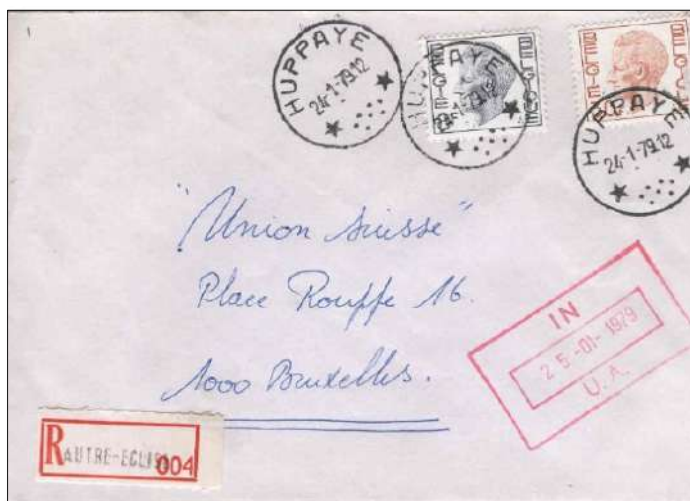 HUPPAYE
24-1-79.12
HUPPAYE
-1-79.12
BELGIË BELGIQUE
BELGIË BELGIQUE
HUPPAYE
24-1-79.12
"Union Suisse"
Place Rouppe 16.
1000 Bruxelles.
IN
25-01-1979
U.A.
R AUTRE-EGLISE 004